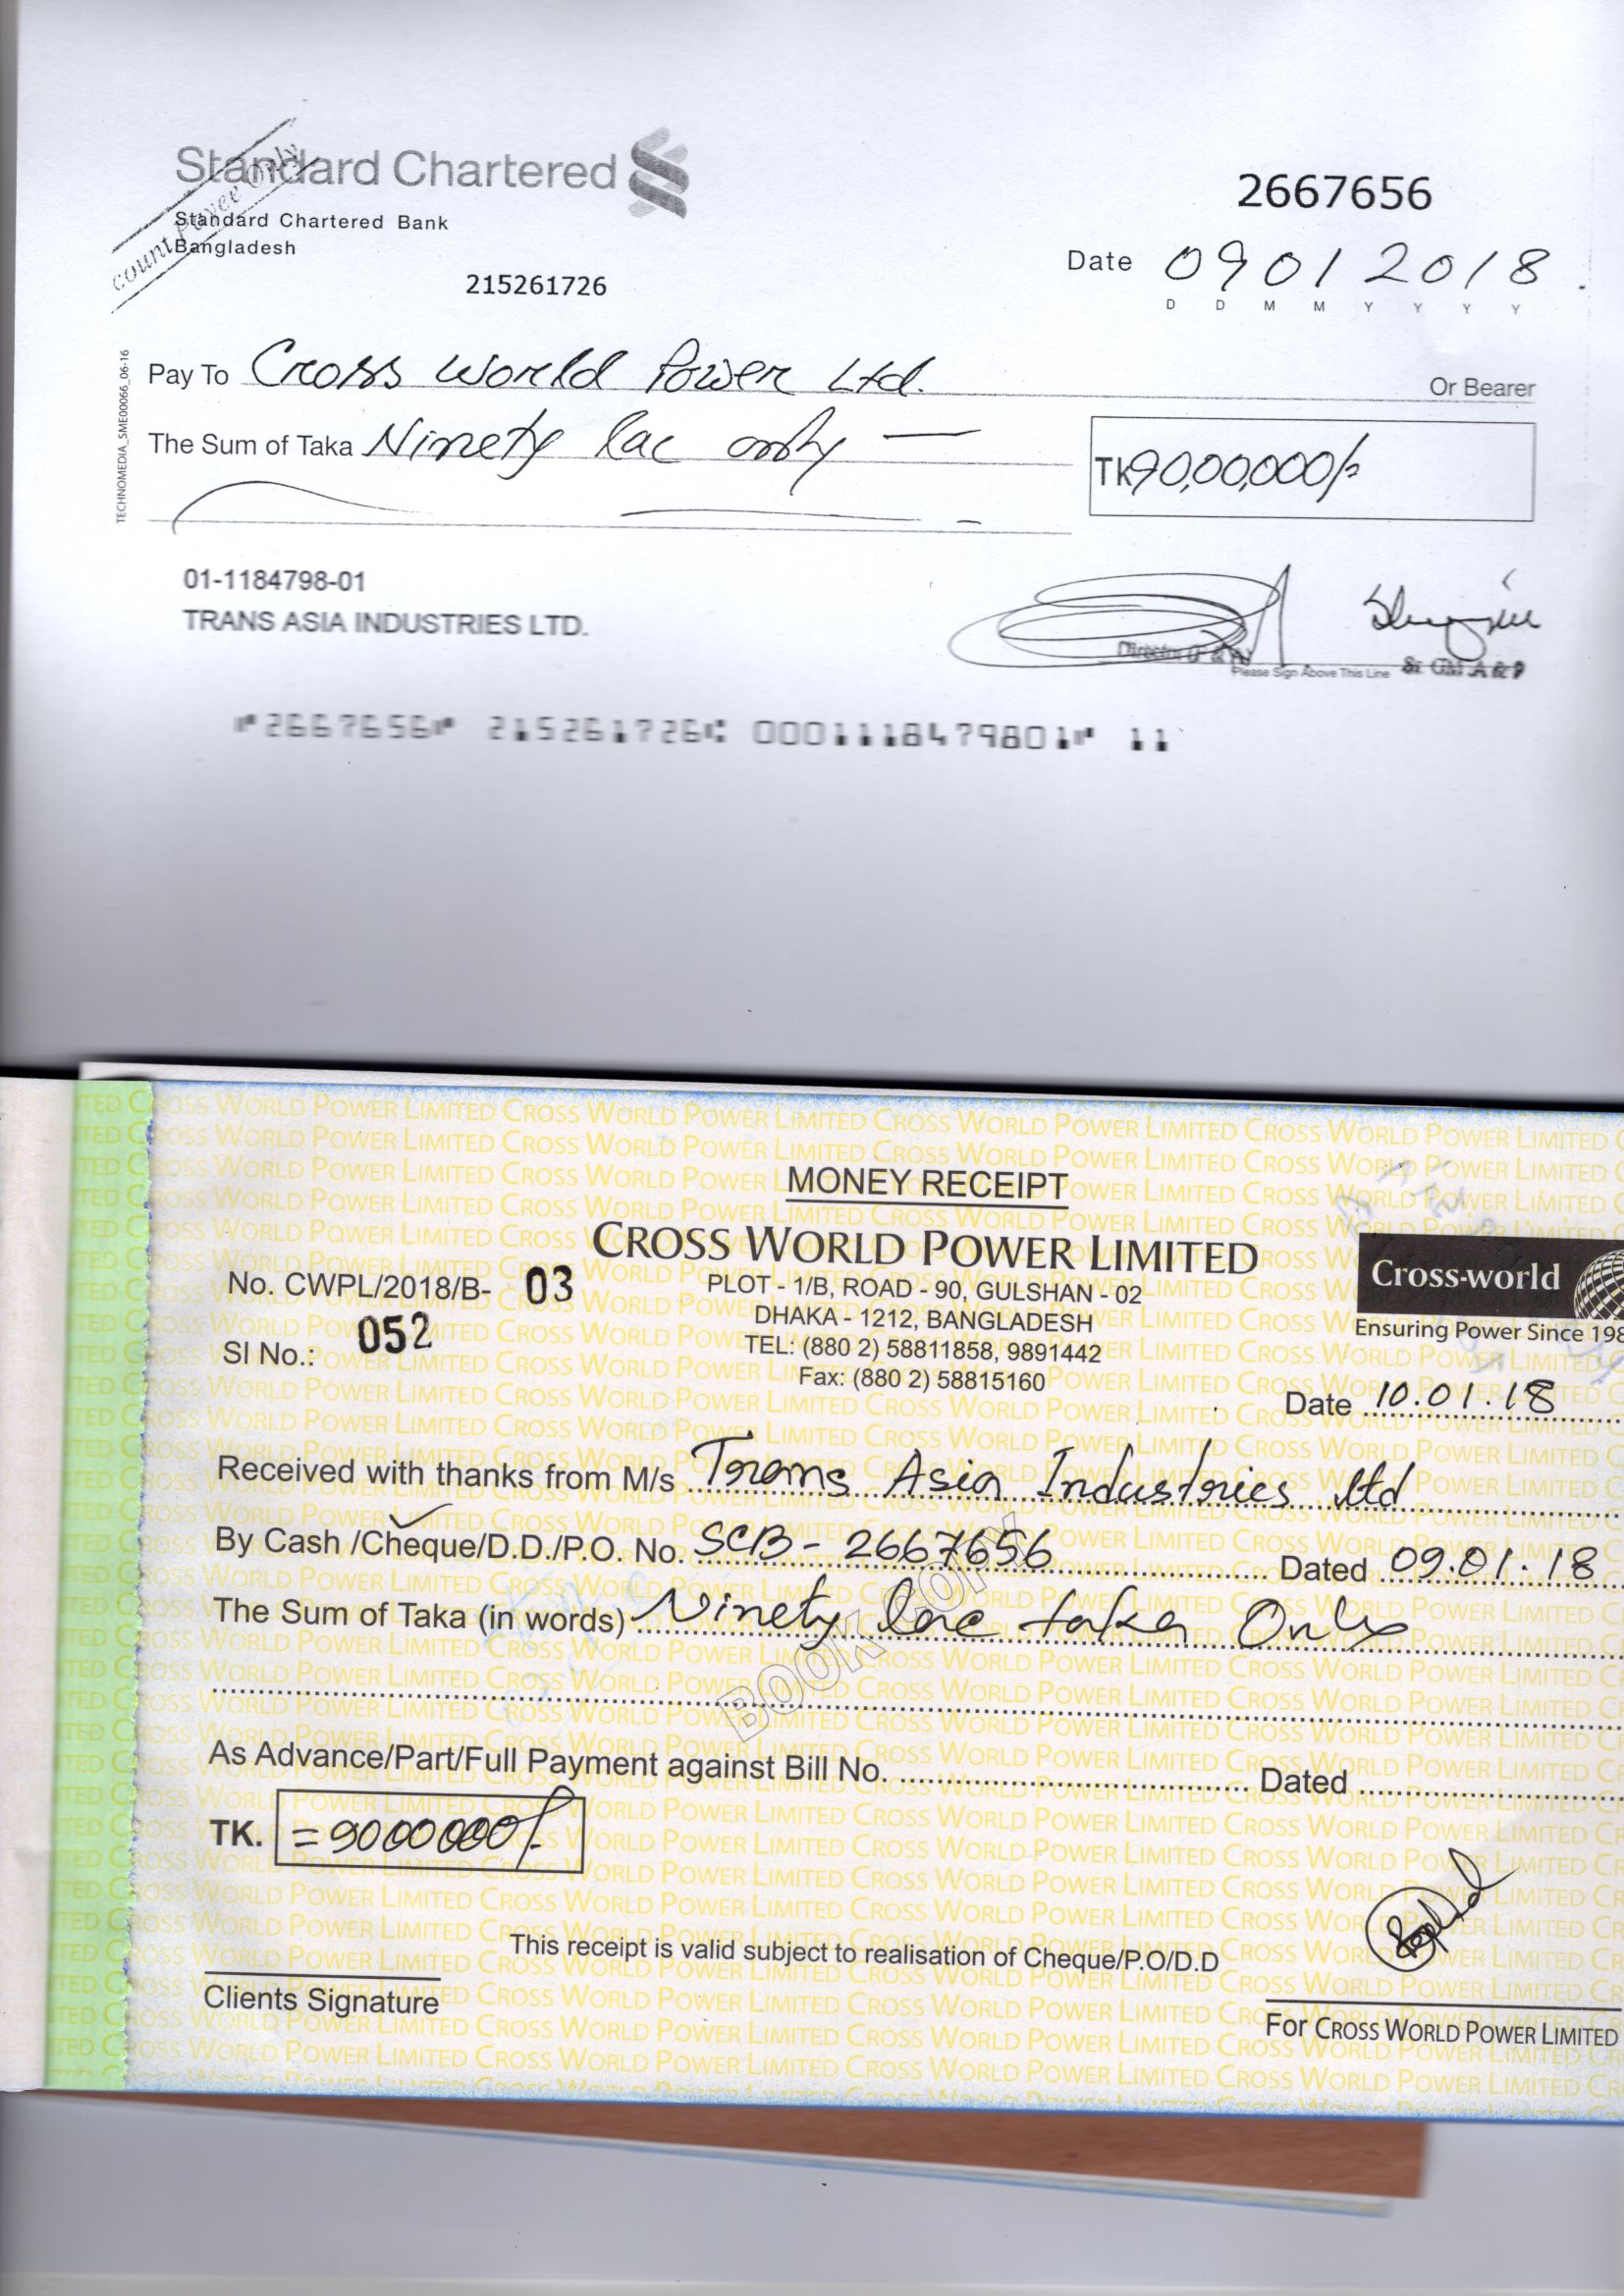 Standard Chartered
count Payee Only
Standard Chartered Bank
Bangladesh
215261726
2667656
Date 09012018
D D M M Y Y Y Y
TECHNOMEDIA_SME00066_06-16
Pay To Cross World Power Ltd. Or Bearer
The Sum of Taka Ninety lac only —
TK90,00,000/-
01-1184798-01
TRANS ASIA INDUSTRIES LTD.
Director (F & A)
Please Sign Above This Line
Sr. GM A & P
⑈2667656⑈ 215261726⑆ 0001118479801⑈ 11
MONEY RECEIPT
CROSS WORLD POWER LIMITED
PLOT - 1/B, ROAD - 90, GULSHAN - 02
DHAKA - 1212, BANGLADESH
TEL: (880 2) 58811858, 9891442
Fax: (880 2) 58815160
No. CWPL/2018/B- 03
Sl No.: 052
Cross-world
Ensuring Power Since 198
Date 10.01.18
Received with thanks from M/s Trans Asia Industries Ltd
By Cash /Cheque/D.D./P.O. No. SCB - 2667656 Dated 09.01.18
The Sum of Taka (in words) Ninety lac taka Only
BOOK COPY
As Advance/Part/Full Payment against Bill No. Dated
TK. =9000000/-
This receipt is valid subject to realisation of Cheque/P.O/D.D
Clients Signature
For CROSS WORLD POWER LIMITED